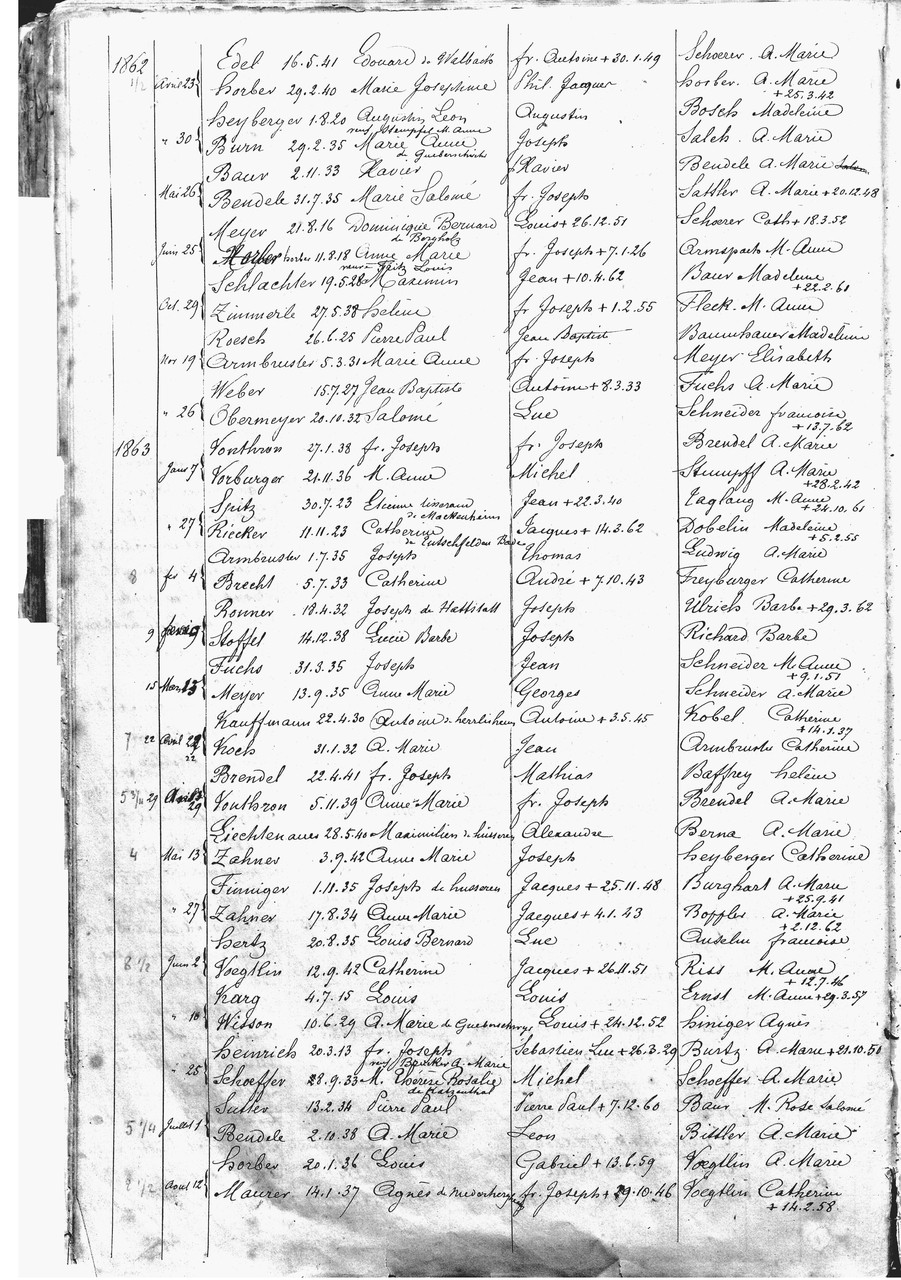 1862 Edel 16.5.41 Edouard de Walbach fr. Antoine + 30.1.49 Schoerer A. Marie
1/2 Avril 23 horber 29.2.40 Marie Josephine Phil. Jacques horber A. Marie
+ 25.3.42
heyberger 1.8.20 Augustin Leon Augustin Bosch Madeleine
veuf Stempfel M. Anne
" 30 Burn 29.2.35 Marie Anne Joseph Salch A. Marie
de Gueberschwihr
Baur 2.11.33 Xavier Xavier Bendele A. Marie
Mai 26 Bendele 31.7.35 Marie Salomé fr. Joseph Sattler A. Marie + 20.12.48
Meyer 21.8.16 Dominique Bernard Louis + 26.12.51 Schoerer Cath + 18.3.52
de Bergholz
Juin 25 horber 11.8.18 Anne Marie fr. Joseph + 7.1.26 Armspach M. Anne
veuve Fritz Louis
Schlachter 19.5.28 Maximin Jean + 10.4.62 Baur Madeleine
+ 22.2.61
Oct. 29 Zimmerle 27.5.38 helène fr Joseph + 1.2.55 Fleck M. Anne
Roesch 26.6.25 Pierre Paul Jean Baptist Baumhauer Madeleine
Nov 19 Armbruster 5.3.31 Marie Anne fr. Joseph Meyer Elisabeth
Weber 15.7.27 Jean Baptiste Antoine + 8.3.33 Fuchs A. Marie
" 26 Obermeyer 20.10.32 Salomé Luc Schneider francoise
+ 13.7.62
1863 Vonthron 27.1.38 fr. Joseph fr. Joseph Brendel A. Marie
Janv 7 Vorburger 21.11.36 M. Anne Michel Stumpff A. Marie
+ 28.2.42
Spitz 30.7.23 Etienne tisserand Jean + 22.3.40 Taglang M. Anne
de Mackenheim + 24.10.61
" 27 Riecker 11.11.23 Catherine Jacques + 14.3.62 Dobelin Madeleine
de Bade + 5.2.55
Armbruster 1.7.35 Joseph Thomas Ludwig A. Marie
8 fev 4 Brecht 5.7.33 Catherine André + 7.10.43 Freyburger Catherine
Ronner 18.4.32 Joseph de Hattstatt Joseph Ulrich Barbe + 29.3.62
9 fevrier 9 Stoffel 14.12.38 Lucie Barbe Joseph Richard Barbe
Fuchs 31.3.35 Joseph Jean Schneider M. Anne
+ 9.1.51
15 Mars 15 Meyer 13.9.35 Anne Marie Georges Schneider A. Marie
Kauffmann 22.4.30 Antoine d. herrlisheim Antoine + 3.5.45 Kobel Catherine
+ 14.1.37
7 22 Avril 22 Koch 31.1.32 A. Marie Jean Armbruster Catherine
22
Brendel 22.4.41 fr. Joseph Mathias Baffrey helène
5 3/4 29 Avril 29 Vonthron 5.11.39 Anne Marie fr. Joseph Brendel A. Marie
Liechtenauer 28.5.40 Maximilien d. husseren Alexandre Berna A. Marie
4 Mai 13 Zahner 3.9.42 Anne Marie Joseph heyberger Catherine
Finniger 1.11.35 Joseph de husseren Jacques + 25.11.48 Burghart A. Marie
+ 25.9.41
" 27 Zahner 17.8.34 Anne Marie Jacques + 4.1.43 Boppler A. Marie
+ 2.12.62
hertz 20.8.35 Louis Bernard Luc Anselm francoise
8 1/2 Juin 2 Voegtlin 12.9.42 Catherine Jacques + 26.11.51 Riss M. Anne
+ 12.7.46
Karg 4.7.15 Louis Louis Ernst M. Anne + 29.3.57
" 10 Wisson 10.6.29 A. Marie de Gueberschwyr Louis + 24.12.52 hiniger Agnès
heinrich 20.3.13 fr. Joseph Sebastien Luc + 26.3.29 Burtz A. Marie + 21.10.50
veuf A. Marie
" 25 Schoeffer 28.9.33 M. Thérèse Rosalie Michel Schoeffer A. Marie
de Katzenthal
Sutter 13.2.34 Pierre Paul Pierre Paul + 7.12.60 Baur M. Rose Salomé
5 1/4 Juillet 1 Bendele 2.10.38 A. Marie Leon Bittler A. Marie
horber 20.1.36 Louis Gabriel + 13.6.59 Voegtlin A. Marie
2 1/2 Aout 12 Maurer 14.1.37 Agnès de Niederhergh fr. Joseph + 29.10.46 Voegtlin Catherine
+ 14.2.58